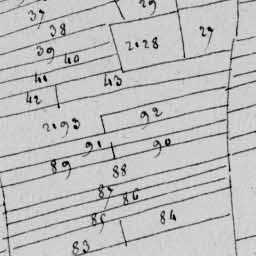 37
29
38
39
40
2028
29
41
43
42
2093
92
91
90
89
88
87
86
85
84
83